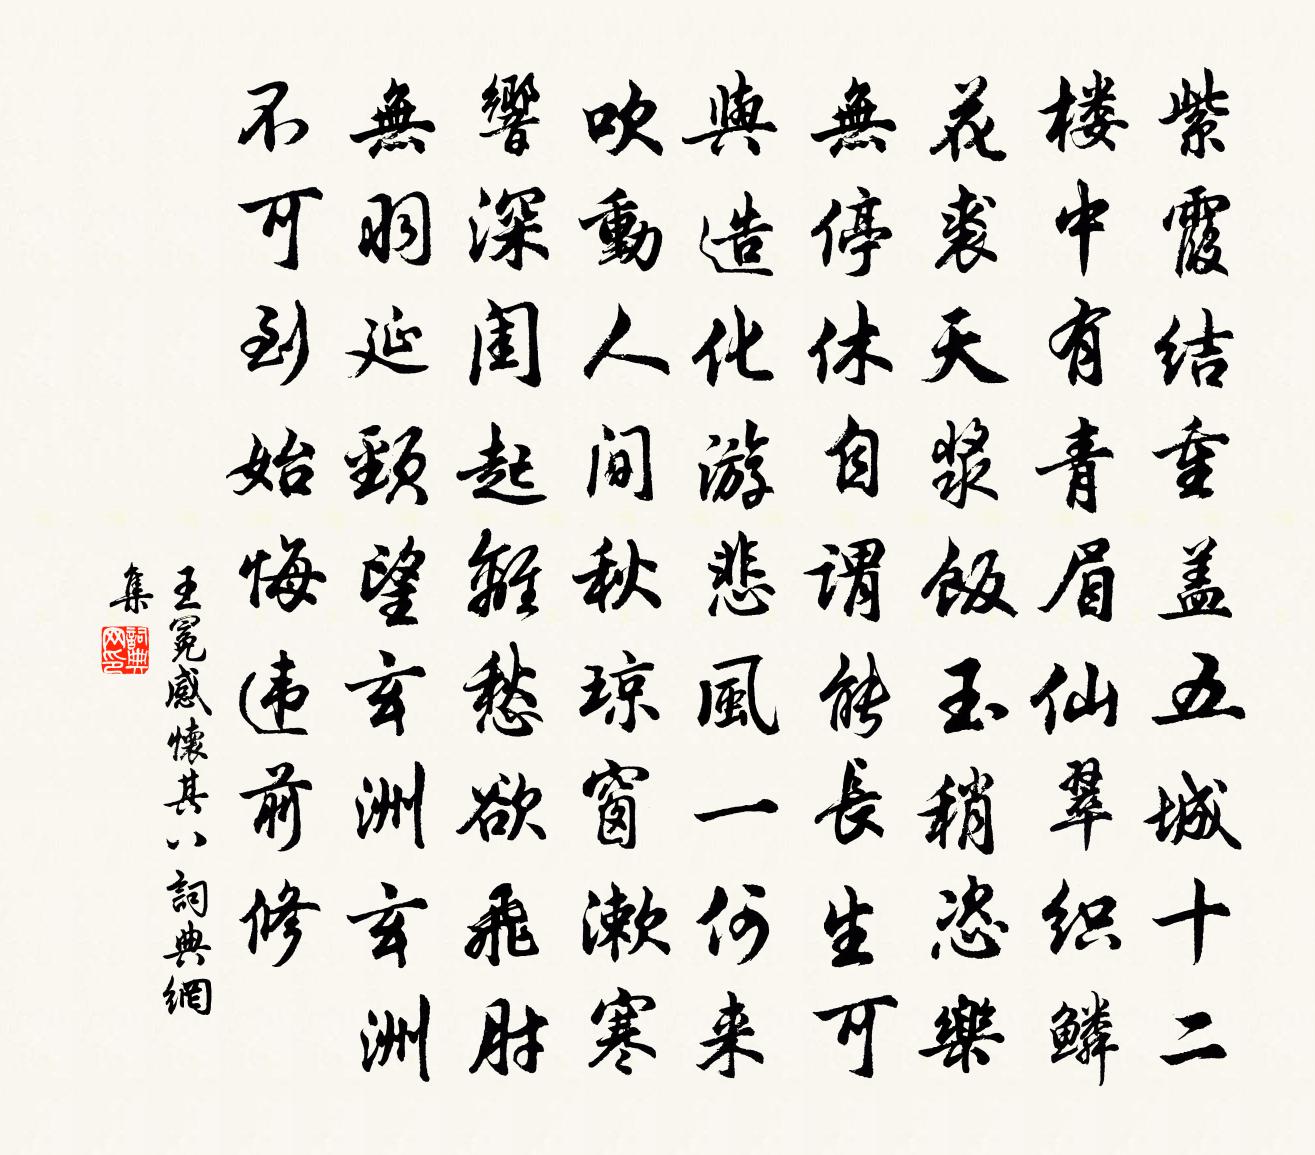 紫霞结重盖五城十二
楼中有青眉仙翠织鳞
花裘天浆饭玉稍恣樂
無停休自谓能長生可
與造化游悲風一何来
吹動人间秋琼窗漱寒
響深闺起離愁欲飛肘
無羽延頸望玄洲玄洲
不可到始悔违前修
王冕感懷其八 詞典網
集
詞典
网印